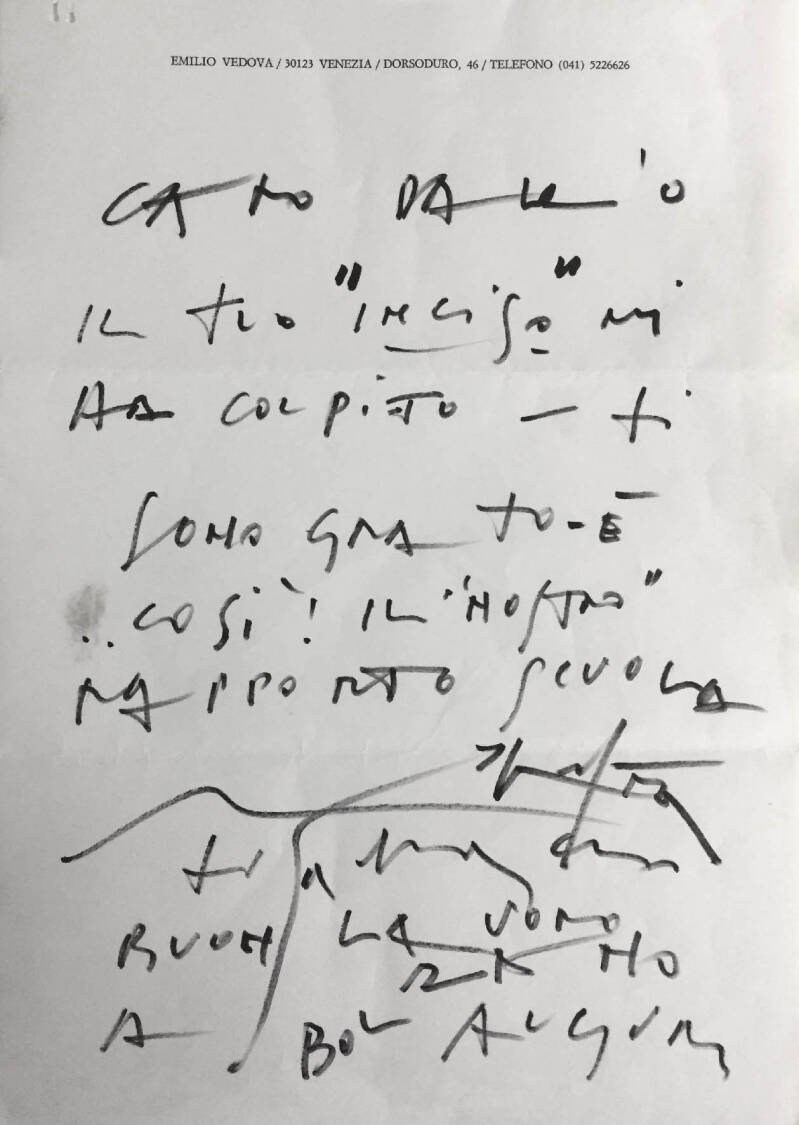 EMILIO VEDOVA / 30123 VENEZIA / DORSODURO, 46 / TELEFONO (041) 5226626
CARO DARIO
IL TUO "INCISO" MI
HA COLPITO — ti
SONO GRATO - È
..COSÌ! IL "NOSTRO"
RAPPORTO SCUOLA
ti
BUON LAVORO
A BOL AUGURI